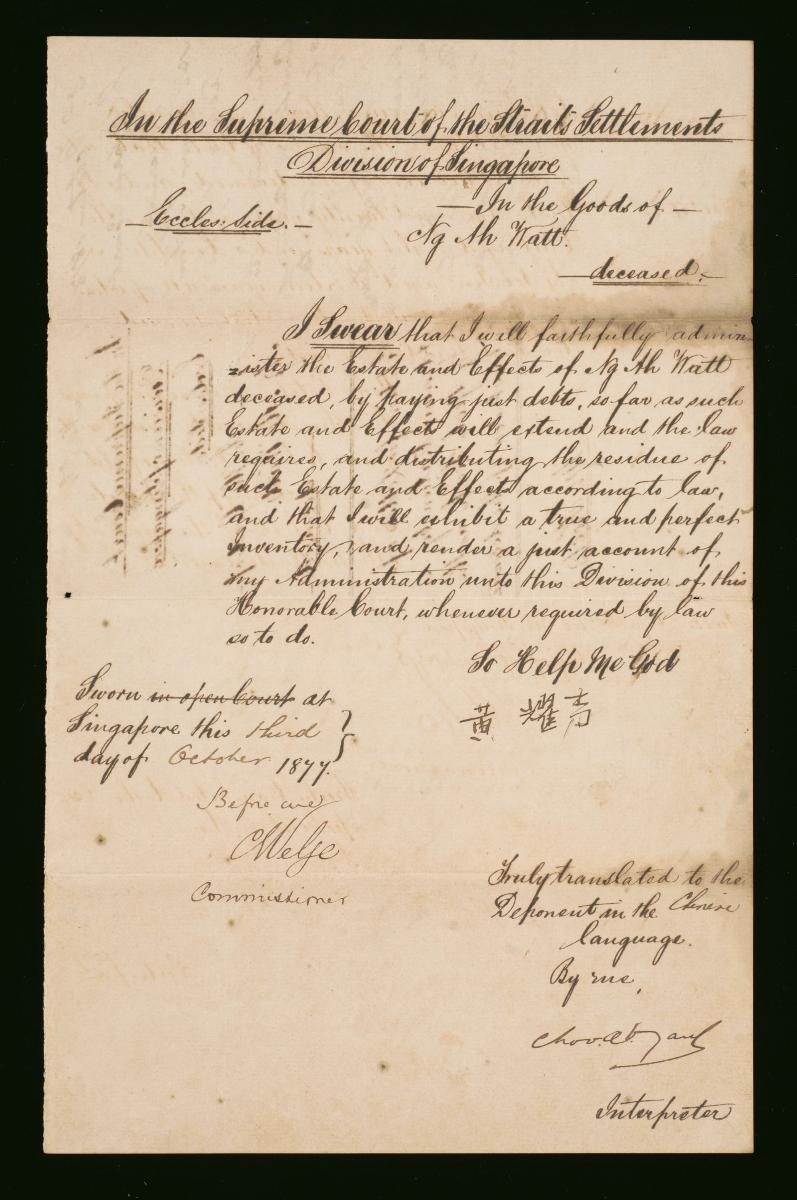 In the Supreme Court of the Straits Settlements
Division of Singapore
— In the Goods of —
— Eccles: Side. —
Ng Ah Watt.
— deceased. —
I Swear that I will faithfully admin
=ister the Estate and Effects of Ng Ah Watt
deceased, by paying just debts, so far as such
Estate and Effects will extend and the law
requires, and distributing the residue of
such Estate and Effects according to law,
and that I will exhibit a true and perfect
Inventory, and render a just account of
my Administration unto this Division of this
Honorable Court, whenever required by law
so to do.
So Help Me God
黃 耀
Sworn in open Court at
Singapore this third
day of October 1877.
Before me
Commissioner
Truly translated to the
Deponent in the Chinese
language.
By me,
Interpreter